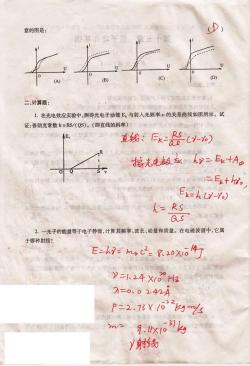 意的图是:
( D )
(A) (B) (C) (D)
二、计算题:
1. 在光电效应实验中,测得光电子动能 Eₖ 与入射光频率 ν 的关系曲线如图所示。试
证:普朗克常数 h=RS/(QS)。(即直线的斜率)
Eₖ
R
O Q S ν
直线: Eₖ= RS/QS (γ-γ₀)
hγ= Eₖ+A₀
=Eₖ+hγ₀,
Eₖ=h(γ-γ₀)
h= RS/QS
2. 一光子的能量等于电子静能,计算其频率、波长、动量和质量。在电磁波谱中,它属
于哪种射线?
E=hγ= m₀c²= 8.20×10⁻¹⁴J
γ=1.24×10²⁰Hz
λ=0.0242Å
P=2.73×10⁻²²kg·m/s
m= 9.11×10⁻³¹kg
γ射线